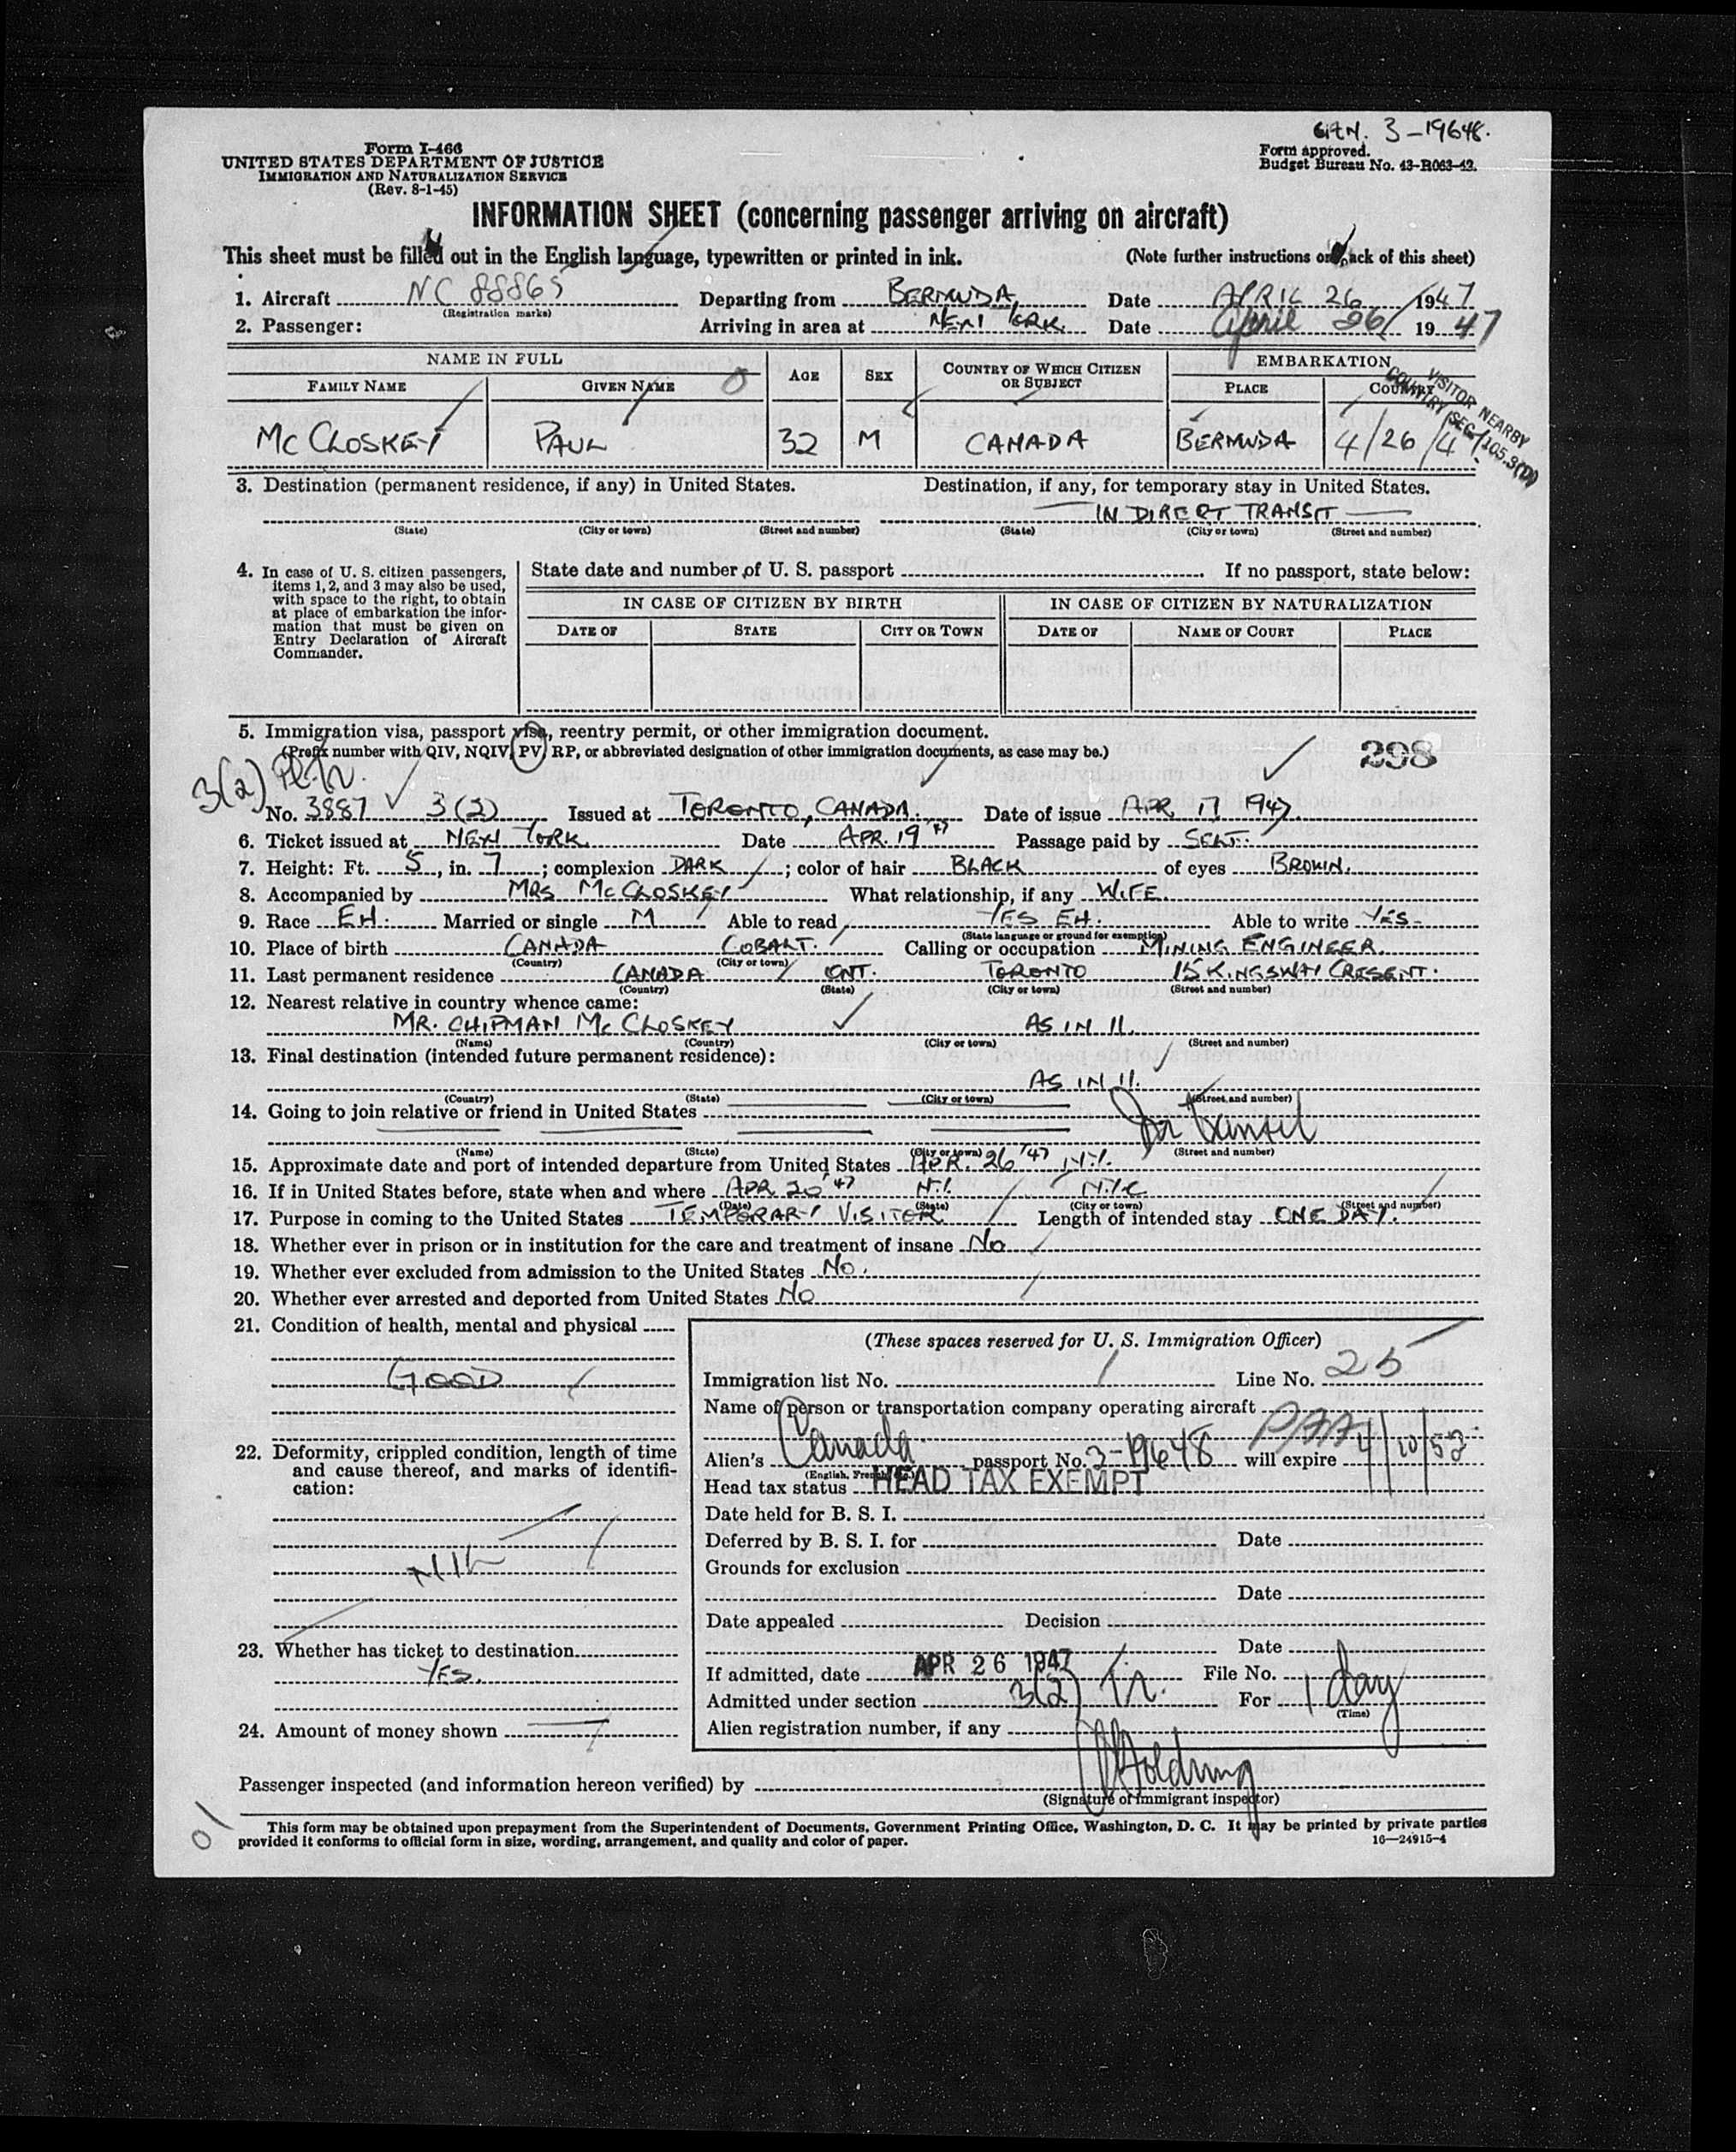 CITN. 3-19648.
Form I-466
UNITED STATES DEPARTMENT OF JUSTICE
IMMIGRATION AND NATURALIZATION SERVICE
(Rev. 8-1-45)
Form approved.
Budget Bureau No. 43-R063-42.
INFORMATION SHEET (concerning passenger arriving on aircraft)
This sheet must be filled out in the English language, typewritten or printed in ink. (Note further instructions on back of this sheet)
1. Aircraft NC 88865 Departing from BERMUDA Date APRIL 26 1947
(Registration marks)
2. Passenger: Arriving in area at NEW YORK Date April 26 1947
NAME IN FULL AGE SEX COUNTRY OF WHICH CITIZEN OR SUBJECT EMBARKATION
FAMILY NAME GIVEN NAME PLACE COUNTRY
VISITOR NEARBY
COUNTRY SEC. 105.3(D)
MC CLOSKEY PAUL 32 M CANADA BERMUDA 4/26/4
3. Destination (permanent residence, if any) in United States. Destination, if any, for temporary stay in United States.
IN DIRECT TRANSIT
(State) (City or town) (Street and number) (State) (City or town) (Street and number)
4. In case of U. S. citizen passengers, items 1, 2, and 3 may also be used, with space to the right, to obtain at place of embarkation the information that must be given on Entry Declaration of Aircraft Commander.
State date and number of U. S. passport If no passport, state below:
IN CASE OF CITIZEN BY BIRTH IN CASE OF CITIZEN BY NATURALIZATION
DATE OF STATE CITY OR TOWN DATE OF NAME OF COURT PLACE
5. Immigration visa, passport visa, reentry permit, or other immigration document.
(Prefix number with QIV, NQIV, PV, RP, or abbreviated designation of other immigration documents, as case may be.)
298
3(2)
No. 3887 3(2) Issued at TORONTO, CANADA. Date of issue APR 17 1947.
6. Ticket issued at NEW YORK Date APR. 19 '47 Passage paid by SELF.
7. Height: Ft. 5, in. 7; complexion DARK; color of hair BLACK of eyes BROWN.
8. Accompanied by MRS MCCLOSKEY What relationship, if any WIFE.
9. Race EH. Married or single M Able to read YES EH. Able to write YES-
(State language or ground for exemption)
10. Place of birth CANADA COBALT. Calling or occupation MINING ENGINEER.
(Country) (City or town)
11. Last permanent residence CANADA ONT. TORONTO 15 KINGSWAY CRESENT.
(Country) (State) (City or town) (Street and number)
12. Nearest relative in country whence came:
MR. CHIPMAN MC CLOSKEY AS IN 11.
(Name) (Country) (City or town) (Street and number)
13. Final destination (intended future permanent residence):
AS IN 11.
(Country) (State) (City or town) (Street and number)
14. Going to join relative or friend in United States
(Name) (State) (City or town) (Street and number)
15. Approximate date and port of intended departure from United States APR. 26 '47 N.Y.
16. If in United States before, state when and where APR 20 '47 N.Y. N.Y.C
(Date) (State) (City or town) (Street and number)
17. Purpose in coming to the United States TEMPORARY VISITOR Length of intended stay ONE DAY.
18. Whether ever in prison or in institution for the care and treatment of insane No
19. Whether ever excluded from admission to the United States No.
20. Whether ever arrested and deported from United States No
21. Condition of health, mental and physical
GOOD
22. Deformity, crippled condition, length of time and cause thereof, and marks of identification:
NIL
23. Whether has ticket to destination
YES.
24. Amount of money shown
(These spaces reserved for U. S. Immigration Officer)
Immigration list No. Line No. 25
Name of person or transportation company operating aircraft
PAA
Alien's Canada passport No. 3-19648 will expire 4/10/52
(English, French, etc.)
Head tax status HEAD TAX EXEMPT
Date held for B. S. I.
Deferred by B. S. I. for Date
Grounds for exclusion
Date
Date appealed Decision
Date
If admitted, date APR 26 1947 File No.
Admitted under section 3(2) For 1 day
(Time)
Alien registration number, if any
Passenger inspected (and information hereon verified) by
(Signature of immigrant inspector)
This form may be obtained upon prepayment from the Superintendent of Documents, Government Printing Office, Washington, D. C. It may be printed by private parties
provided it conforms to official form in size, wording, arrangement, and quality and color of paper. 16—24915-4